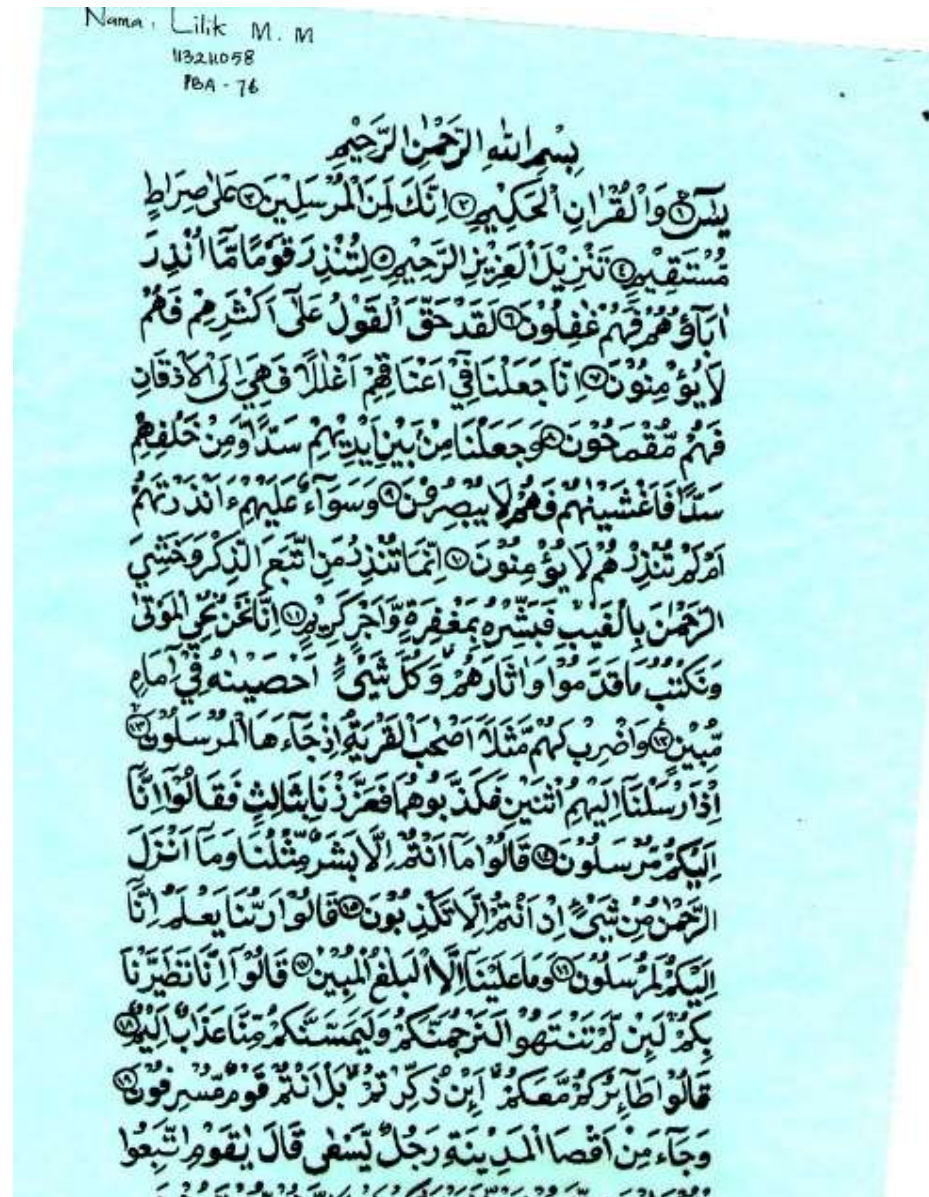 Nama : Lilik M. M
113211058
PBA - 76
بِسْمِ اللهِ الرَّحْمٰنِ الرَّحِيْمِ
يٰسۤ ۝١ وَالْقُرْاٰنِ الْحَكِيْمِ ۝٢ اِنَّكَ لَمِنَ الْمُرْسَلِيْنَ ۝٣ عَلٰى صِرَاطٍ
مُّسْتَقِيْمٍ ۝٤ تَنْزِيْلَ الْعَزِيْزِ الرَّحِيْمِ ۝٥ لِتُنْذِرَ قَوْمًا مَّآ اُنْذِرَ
اٰبَآؤُهُمْ فَهُمْ غٰفِلُوْنَ ۝٦ لَقَدْ حَقَّ الْقَوْلُ عَلٰٓى اَكْثَرِهِمْ فَهُمْ
لَا يُؤْمِنُوْنَ ۝٧ اِنَّا جَعَلْنَا فِيْٓ اَعْنَاقِهِمْ اَغْلٰلًا فَهِيَ اِلَى الْاَذْقَانِ
فَهُمْ مُّقْمَحُوْنَ ۝٨ وَجَعَلْنَا مِنْۢ بَيْنِ اَيْدِيْهِمْ سَدًّا وَّمِنْ خَلْفِهِمْ
سَدًّا فَاَغْشَيْنٰهُمْ فَهُمْ لَا يُبْصِرُوْنَ ۝٩ وَسَوَآءٌ عَلَيْهِمْ ءَاَنْذَرْتَهُمْ
اَمْ لَمْ تُنْذِرْهُمْ لَا يُؤْمِنُوْنَ ۝١٠ اِنَّمَا تُنْذِرُ مَنِ اتَّبَعَ الذِّكْرَ وَخَشِيَ
الرَّحْمٰنَ بِالْغَيْبِ فَبَشِّرْهُ بِمَغْفِرَةٍ وَّاَجْرٍ كَرِيْمٍ ۝١١ اِنَّا نَحْنُ نُحْيِ الْمَوْتٰى
وَنَكْتُبُ مَا قَدَّمُوْا وَاٰثَارَهُمْ وَكُلَّ شَيْءٍ اَحْصَيْنٰهُ فِيْٓ اِمَامٍ
مُّبِيْنٍ ۝١٢ وَاضْرِبْ لَهُمْ مَّثَلًا اَصْحٰبَ الْقَرْيَةِ اِذْ جَآءَهَا الْمُرْسَلُوْنَ ۝١٣
اِذْ اَرْسَلْنَآ اِلَيْهِمُ اثْنَيْنِ فَكَذَّبُوْهُمَا فَعَزَّزْنَا بِثَالِثٍ فَقَالُوْٓا اِنَّآ
اِلَيْكُمْ مُّرْسَلُوْنَ ۝١٤ قَالُوْا مَآ اَنْتُمْ اِلَّا بَشَرٌ مِّثْلُنَا وَمَآ اَنْزَلَ
الرَّحْمٰنُ مِنْ شَيْءٍ اِنْ اَنْتُمْ اِلَّا تَكْذِبُوْنَ ۝١٥ قَالُوْا رَبُّنَا يَعْلَمُ اِنَّآ
اِلَيْكُمْ لَمُرْسَلُوْنَ ۝١٦ وَمَا عَلَيْنَآ اِلَّا الْبَلٰغُ الْمُبِيْنُ ۝١٧ قَالُوْٓا اِنَّا تَطَيَّرْنَا
بِكُمْ لَئِنْ لَّمْ تَنْتَهُوْا لَنَرْجُمَنَّكُمْ وَلَيَمَسَّنَّكُمْ مِّنَّا عَذَابٌ اَلِيْمٌ ۝١٨
قَالُوْا طَآئِرُكُمْ مَّعَكُمْ اَئِنْ ذُكِّرْتُمْ بَلْ اَنْتُمْ قَوْمٌ مُّسْرِفُوْنَ ۝١٩
وَجَآءَ مِنْ اَقْصَا الْمَدِيْنَةِ رَجُلٌ يَّسْعٰى قَالَ يٰقَوْمِ اتَّبِعُوا